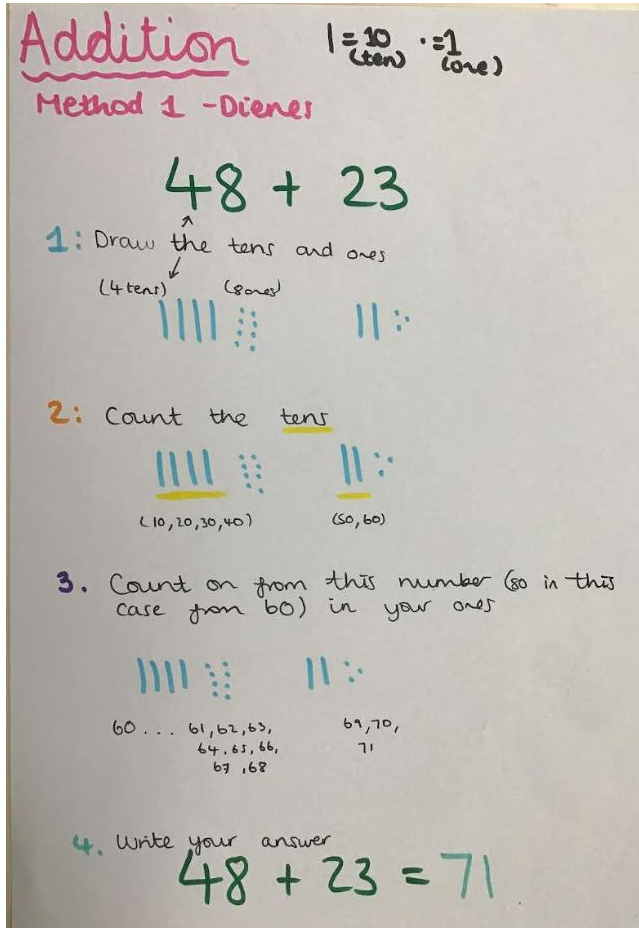 Addition
| = 10 • = 1
(ten) (one)
Method 1 - Dienes
48 + 23
1: Draw the tens and ones
(4 tens) (8 ones)
2: Count the tens
(10, 20, 30, 40) (50, 60)
3. Count on from this number (so in this
case from 60) in your ones
60 ... 61, 62, 63, 69, 70,
64, 65, 66, 71
67, 68
4. Write your answer
48 + 23 = 71